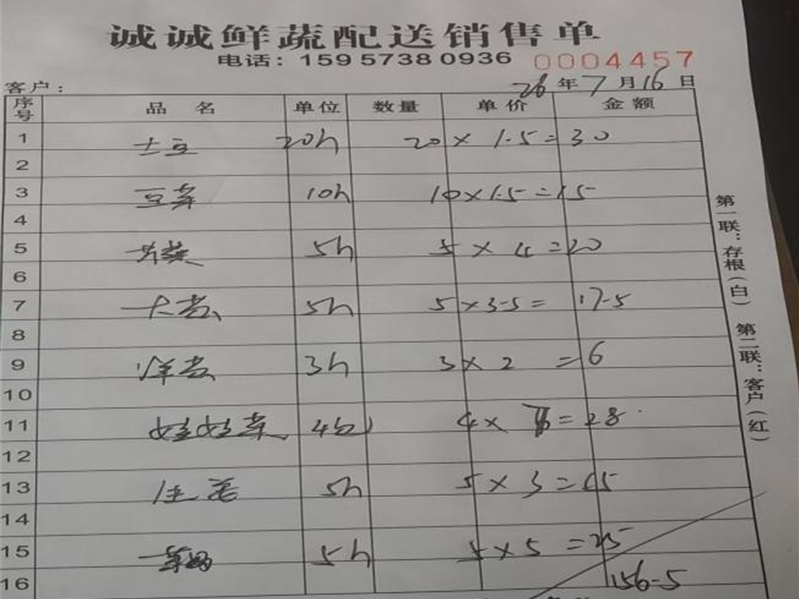 诚诚鲜蔬配送销售单
电话：15957380936 0004457
客户： 26年7月16日
序号 品名 单位 数量 单价 金额
1 土豆 20斤 20×1.5=30
2
3 豆芽 10斤 10×1.5=15
4
5 5斤 5×4=20
6
7 大葱 5斤 5×3.5=17.5
8
9 洋葱 3斤 3×2=6
10
11 娃娃菜 4包 4×7=28
12
13 生姜 5斤 5×3=15
14
15 5斤 5×5=25
16 156.5
第一联：存根（白） 第二联：客户（红）